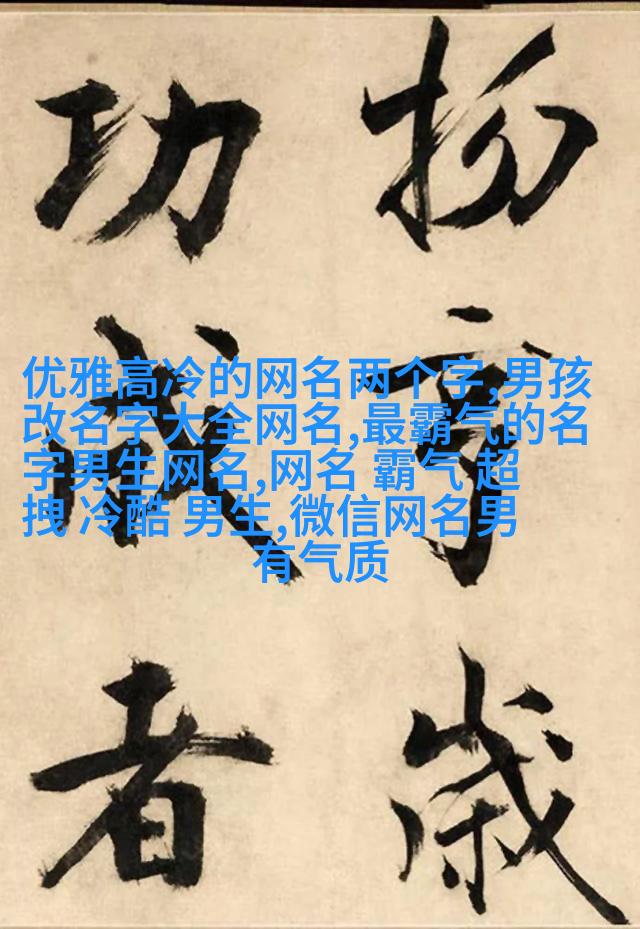 优雅高冷的网名两个字,男孩
改名字大全网名,最霸气的名
字男生网名,网名 霸气 超
拽 冷酷 男生,微信网名男
有气质
歲
功成者